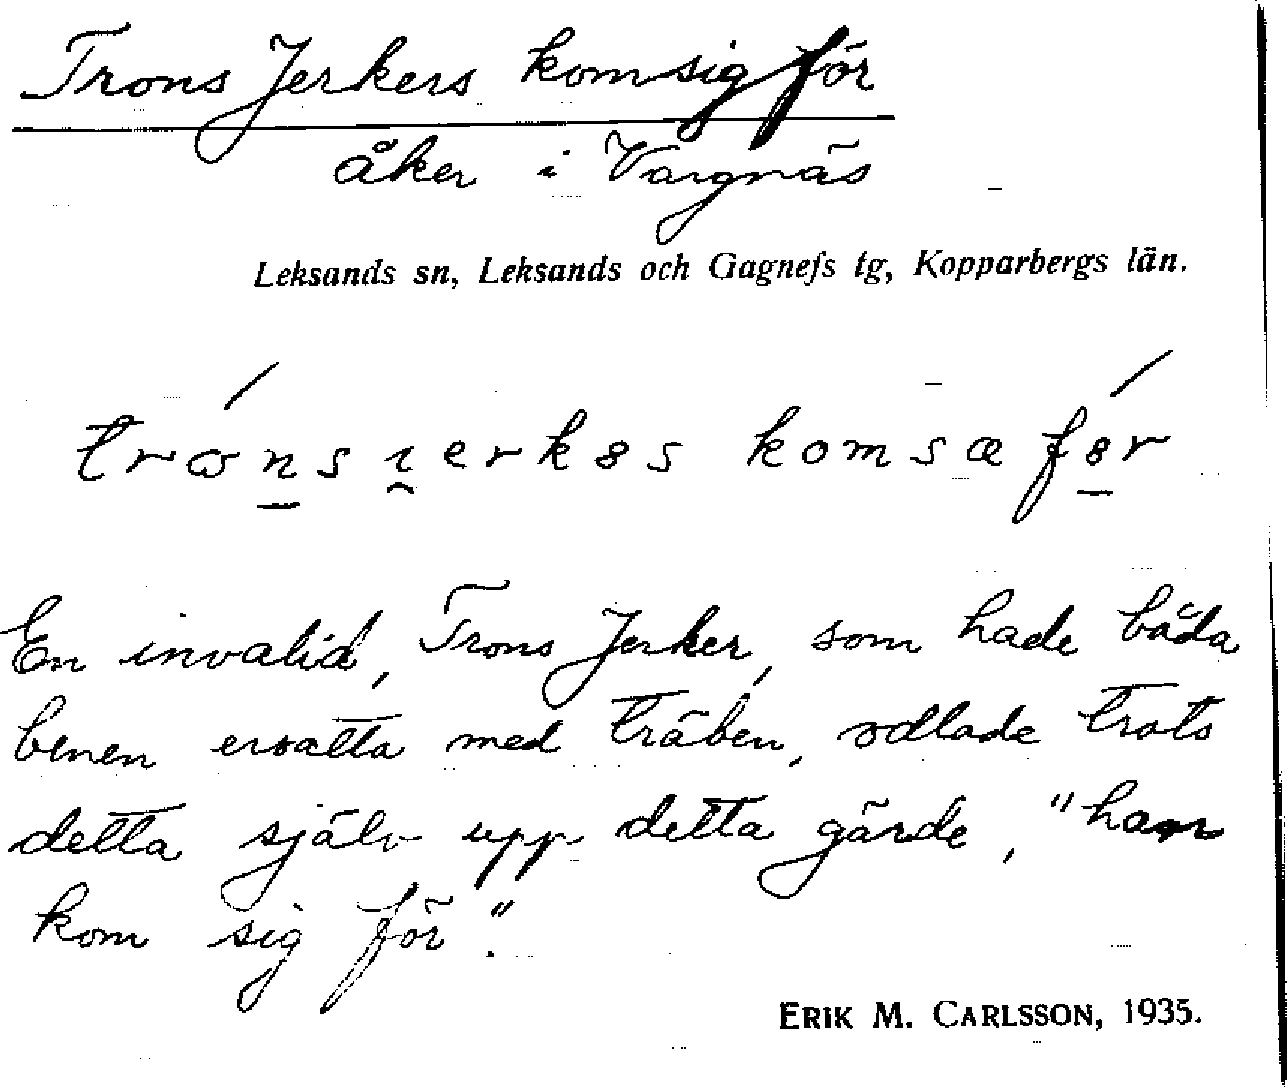 Trons Jerkers komsigför
åker i Vargnäs
Leksands sn, Leksands och Gagnefs tg, Kopparbergs län.
En invalid, Trons Jerker, som hade båda
benen ersatta med träben, odlade trots
detta själv upp detta gärde, "han
kom sig för".
ERIK M. CARLSSON, 1935.